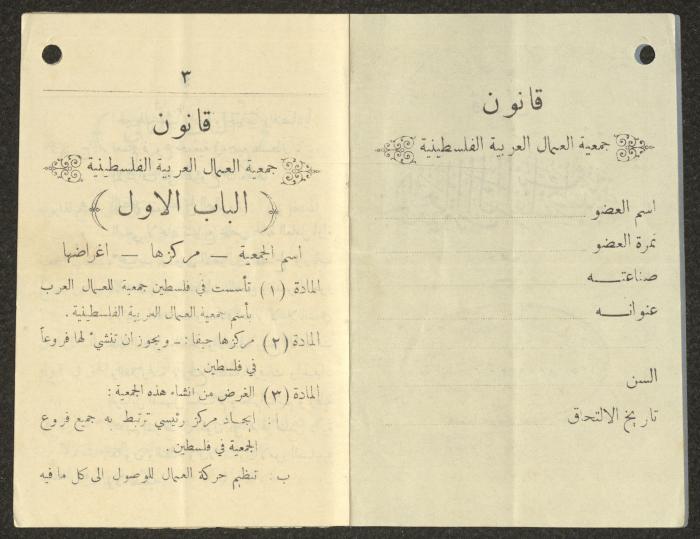 قانون
جمعية العمال العربية الفلسطينية
اسم العضو
نمرة العضو
صناعتـــه
عنوانـــه
السن
تاريخ الالتحاق
٣
قانون
جمعية العمال العربية الفلسطينية
( الباب الاول )
اسم الجمعية — مركزها — اغراضها
المادة (١) تأسست في فلسطين جمعية للعمال العرب
بأسم جمعية العمال العربية الفلسطينية .
المادة (٢) مركزها حيفا : ـ ويجوز ان تنشئ لها فروعاً
في فلسطين .
المادة (٣) الغرض من انشاء هذه الجمعية :
ا : ايجـاد مركز رئيسي ترتبط به جميع فروع
الجمعية في فلسطين .
ب : تنظيم حركة العمال للوصول الى كل ما فيه